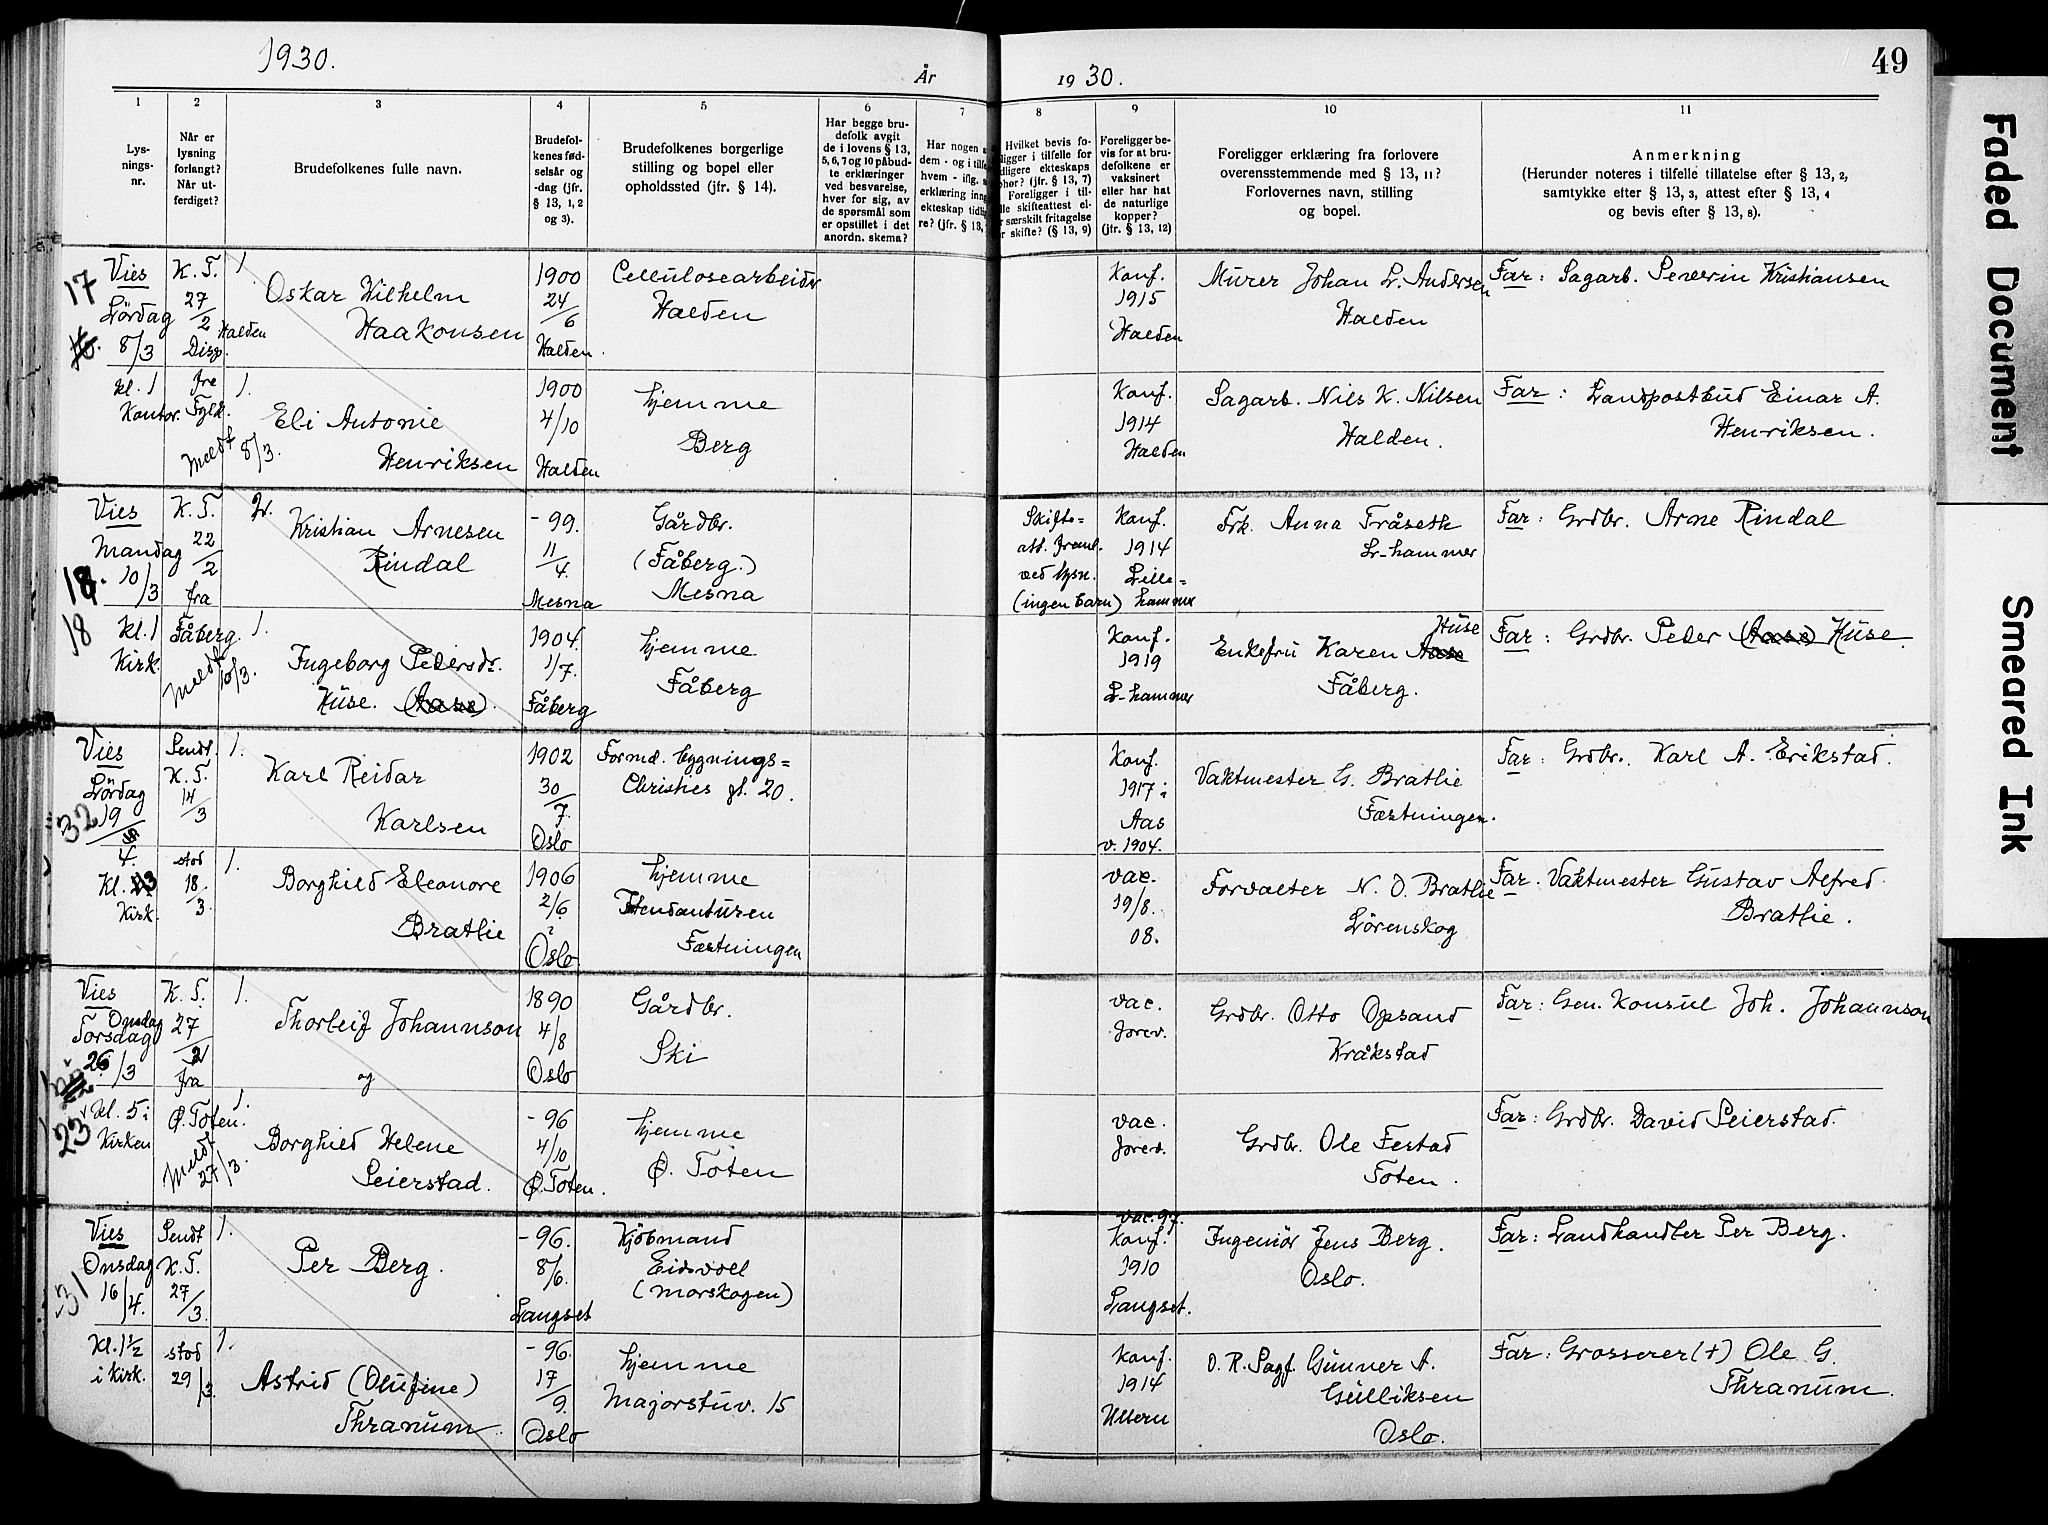 1930.
År
1930.
49
Faded Document
Smeared Ink
1
2
3
4
5
6
7
8
9
10
11
Lys-
nings-
nr.
Når er
lysning
forlangt?
Når ut-
ferdiget?
Brudefolkenes fulle navn.
Brudefol-
kenes fød-
selsår og
-dag (jfr.
§ 13, 1, 2
og 3).
Brudefolkenes borgerlige
stilling og bopel eller
opholdssted (jfr. § 14).
Har begge bru-
defolk avgit
de i lovens § 13,
5, 6, 7 og 10 påbud-
te erklæringer
ved besvarelse,
hver for sig, av
de spørsmål som
er opstillet i det
anordn. skema?
Har nogen a
dem - og i tilfe
hvem - iflg.
erklæring inng
ekteskap tidlig
re? (jfr. § 13,
Hvilket bevis fo-
ligger i tilfelle for
dligere ekteskaps
phør? (jfr. § 13, 7)
Foreligger i til-
lle skifteattest el-
r særskilt fritagelse
r skifte? (§ 13, 9)
Foreligger be-
vis for at bru-
defolkene er
vaksinert
eller har hat
de naturlige
kopper?
(jfr. § 13, 12)
Foreligger erklæring fra forlovere
overensstemmende med § 13, 11?
Forlovernes navn, stilling
og bopel.
Anmerkning
(Herunder noteres i tilfelle tillatelse efter § 13, 2,
samtykke efter § 13, 3, attest efter § 13, 4
og bevis efter § 13, 8).
17
Vies
Lördag
8/3
kl. 1
Kontor.
K. T.
27/2
Halden
Disp.
fre
Fylk.
meldt 8/3.
1
Oskar Wilhelm
Haakonsen
1900
24/6
Halden.
Cellulosearbeider
Halden
Konf.
1915
Halden
Murer Johan L. Andersen
Halden
Far: Sagarb. Severin Kristiansen
1.
Eli Antonie
Henriksen
1900
4/10
Halden
hjemme
Berg
Konf.
1914
Halden
Sagarb. Nils K. Nilsen
Halden.
Far: Landpostbud Einar A.
Henriksen.
18
Vies
Mandag
10/3
kl. 1
Kirk.
K. T.
22/2
fra
Fåberg.
meldt 10/3.
2.
Kristian Arnesen
Rindal
- 99.
11/4.
Mesna
Gårdbr.
(Fåberg.)
Mesna
Skifte=
att. freml.
ved lysn.
(ingen barn)
Konf.
1914
Lille=
hammer
Frk. Anna Tråseth
L-hammer
Far: Grdbr. Arne Rindal
1.
Ingeborg Pedersdr.
Huse. (Aase).
1904.
1/7.
Fåberg
hjemme
Fåberg
Konf.
1919
L-hammer
Enkefru Karen Aase Huse
Fåberg.
Far: Grdbr. Peder (Aase) Huse.
32
Vies
Lördag
19/4.
Kl. 3
Kirk.
Sendt.
K. T.
14/3
stod
18/3.
1.
Karl Reidar
Karlsen
1902
30/7.
Oslo
Formd. bygnings=
Christies gt. 20.
Konf.
1917 i
Aas
v. 1904.
Vaktmester G. Bratlie
Fæstningen.
Far: Grdbr. Karl A. Erikstad.
1.
Borghild Eleonore
Bratlie
1906
2/6
Oslo
hjemme
Fæstningen
vac.
19/8.
08.
Forvalter N. O. Bratlie
Lörenskog
Far. Vaktmester Gustav Alfred.
Bratlie.
23
Vies
Onsdag
Torsdag
26/3
kl. 5 i
Kirken
K. T.
27/2
fra
Ø. Toten.
meldt
27/3.
1.
Thorleif Johannson
og
1890
4/8
Oslo
Gårdbr.
Ski
vac.
forev.
Grdbr. Otto Opsand
Kråkstad
Far: Gen. Konsul Joh. Johannson
1.
Borghild Helene
Seierstad.
- 96
4/10
Ø. Toten.
hjemme
Ø. Toten
vac.
forev.
Grdbr. Ole Festad
Toten.
Far: Grdbr. David Seierstad.
31
Vies
Onsdag
16/4.
Kl. 1½
i Kirk.
Sendt
K. T.
27/3.
stod
29/3.
1.
Per Berg.
- 96.
8/6.
Langset
Kjöbmand
Eidsvoll
(Morskogen)
vac. 97.
Konf.
1910
Langset.
Ingeniör Jens Berg.
Oslo.
Far: Landhandler Per Berg.
1.
Astrid (Olufine)
Thranum.
- 96.
17/9.
Oslo
hjemme
Majorstuv. 15
Konf.
1914
Ullern
O. R. Sagf. Gunner A.
Gulliksen
Oslo.
Far: Grosserer (+) Ole G.
Thranum.